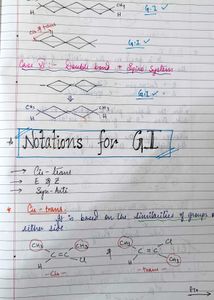 CH₃
H
G.I ✓
cis & trans
G.I ✓
Case VI :- Double bond + Spiro System
G.I ✓
CH₃ CH₃
H H
Notations for G.I
→ Cis - trans
→ E & Z
→ Syn - Anti
* Cis - trans :
It is based on the similarities of groups
either side
CH₃ CH₃ CH₃ Cl
C = C & C = C
H Cl H CH₃
- cis - - trans -